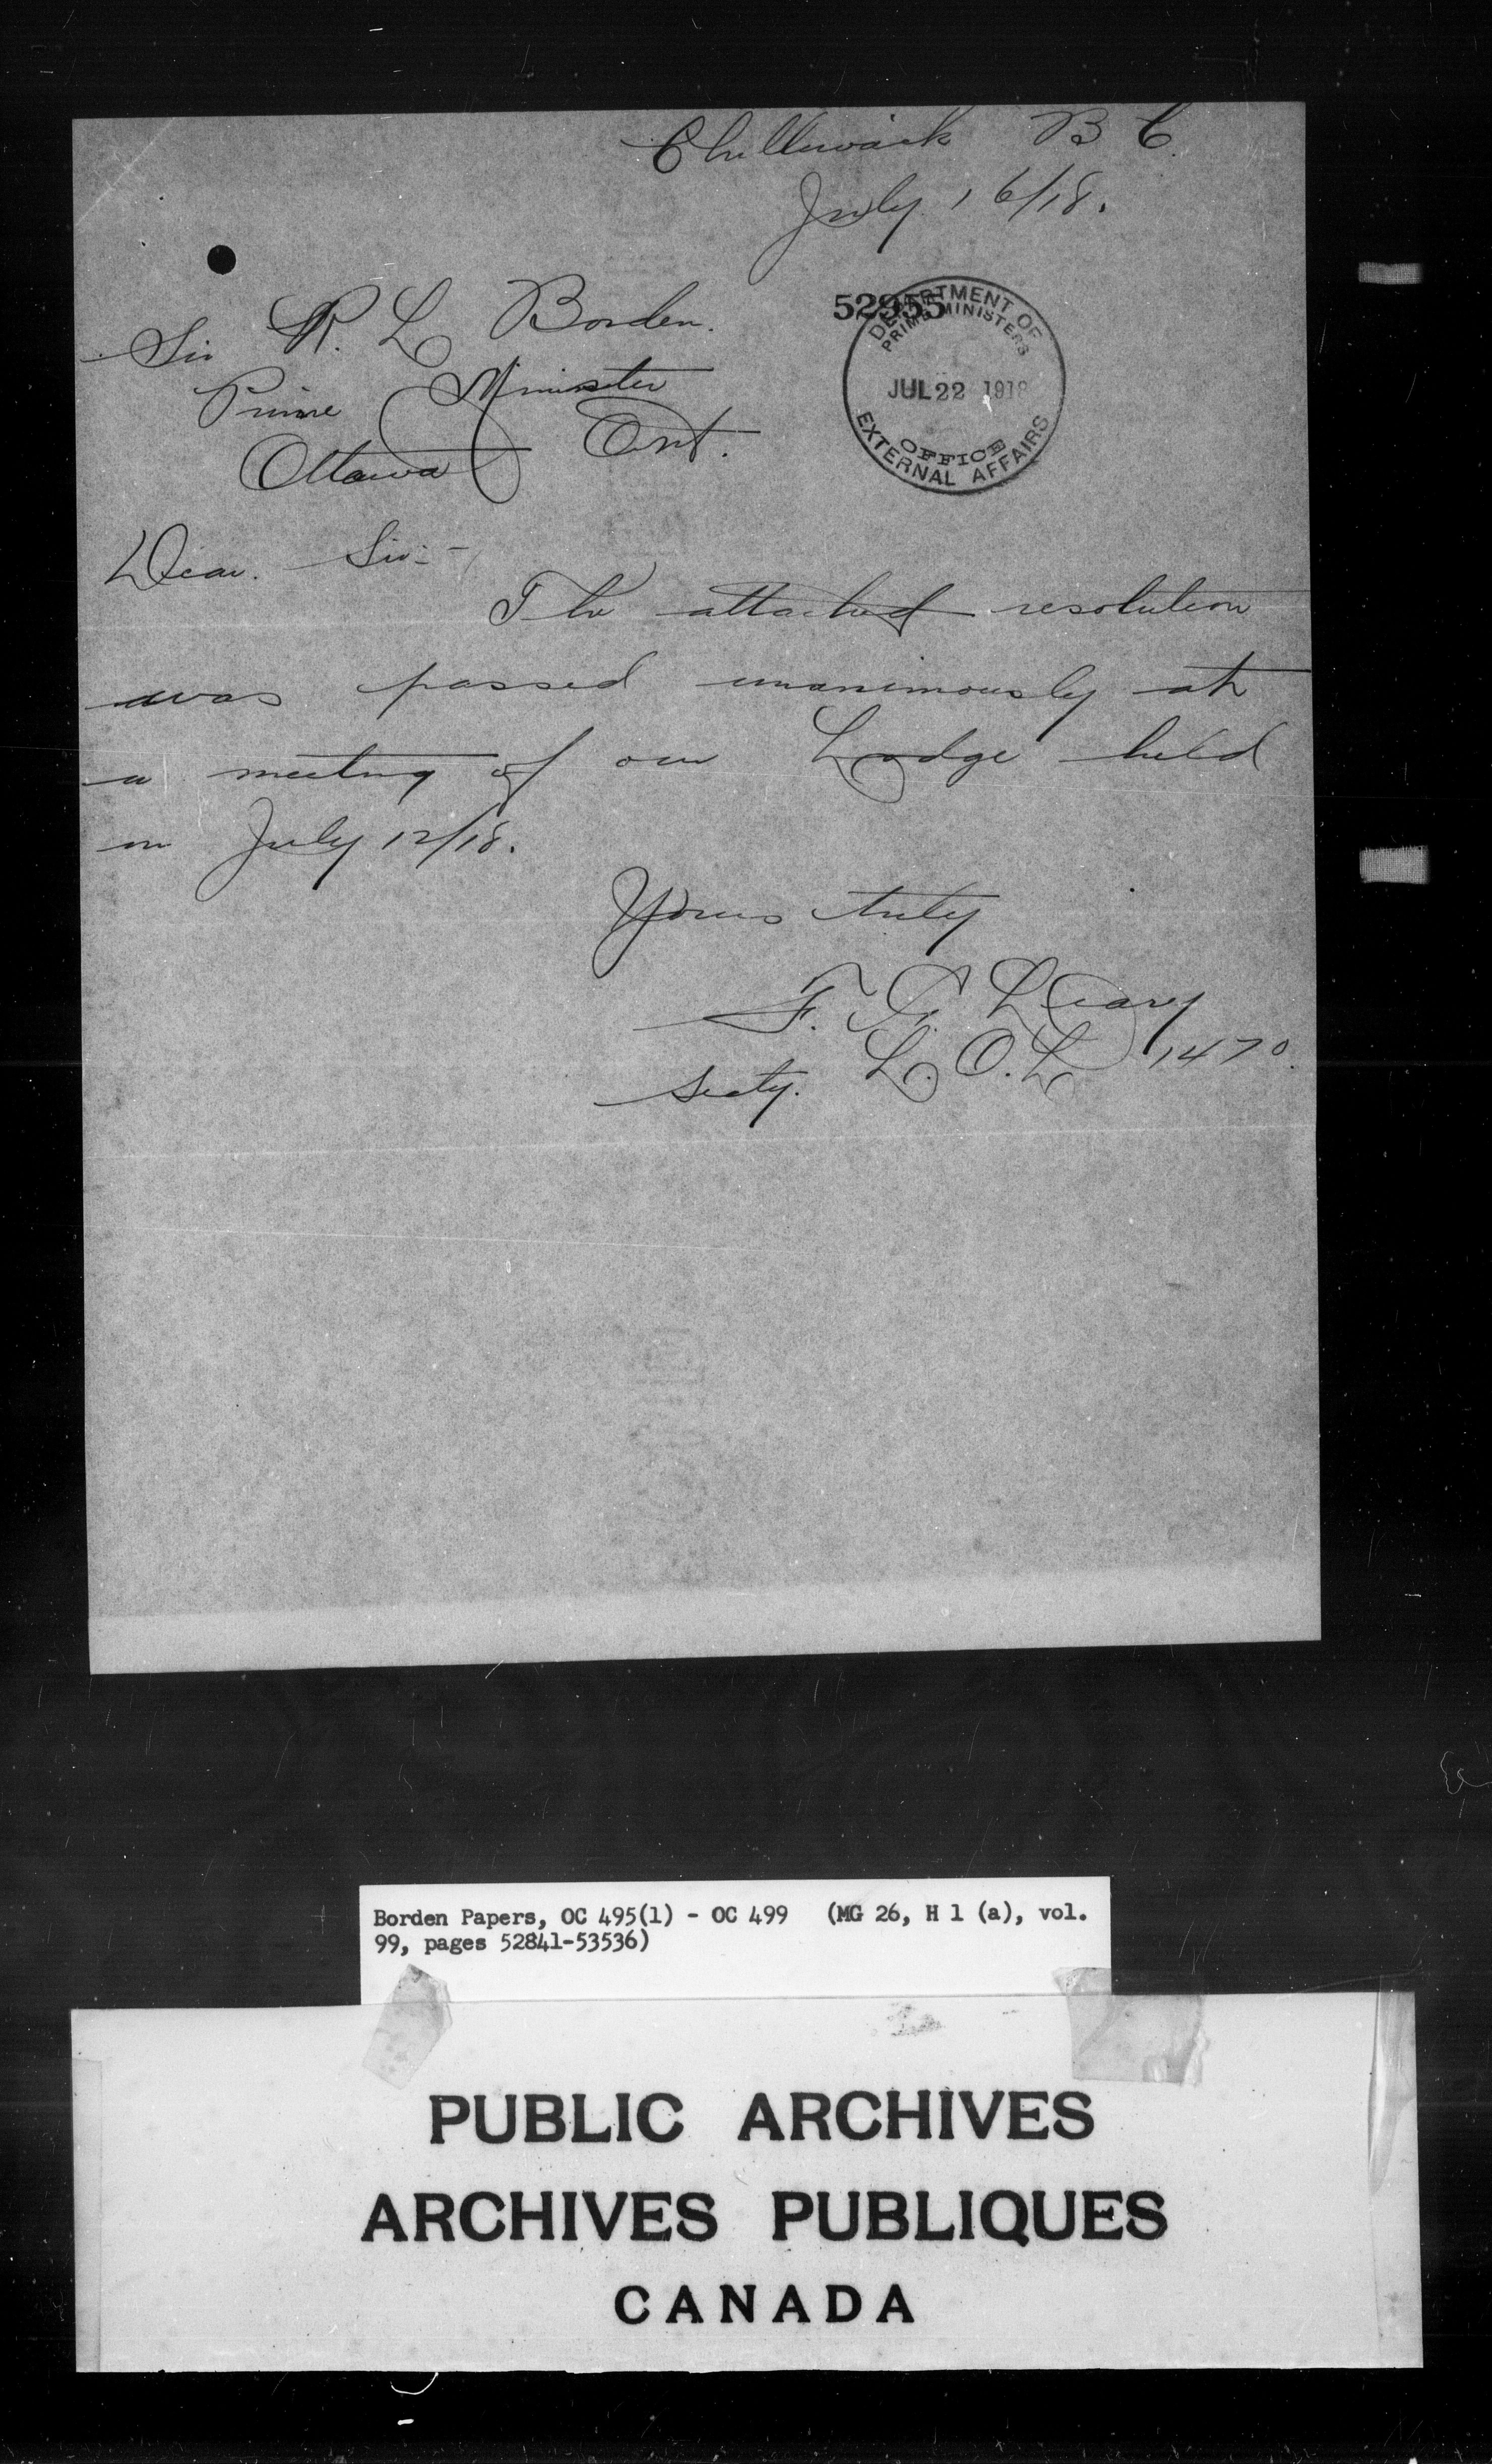 Chilliwack B C.
July 16/18.
52955
DEPARTMENT OF
PRIME MINISTERS
JUL 22 1918
OFFICE
EXTERNAL AFFAIRS
Sir R. L Borden.
Prime Minister
Ottawa Ont.
Dear Sir:-
The attached resolution
was passed unanimously at
a meeting of our Lodge held
on July 12/18.
Yours truly
F. Leary
Secty. L. O. L 1470.
Borden Papers, OC 495(1) - OC 499 (MG 26, H 1 (a), vol.
99, pages 52841-53536)
PUBLIC ARCHIVES
ARCHIVES PUBLIQUES
CANADA